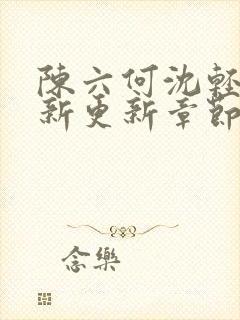 陳六何沈輕
新更新章節
念樂